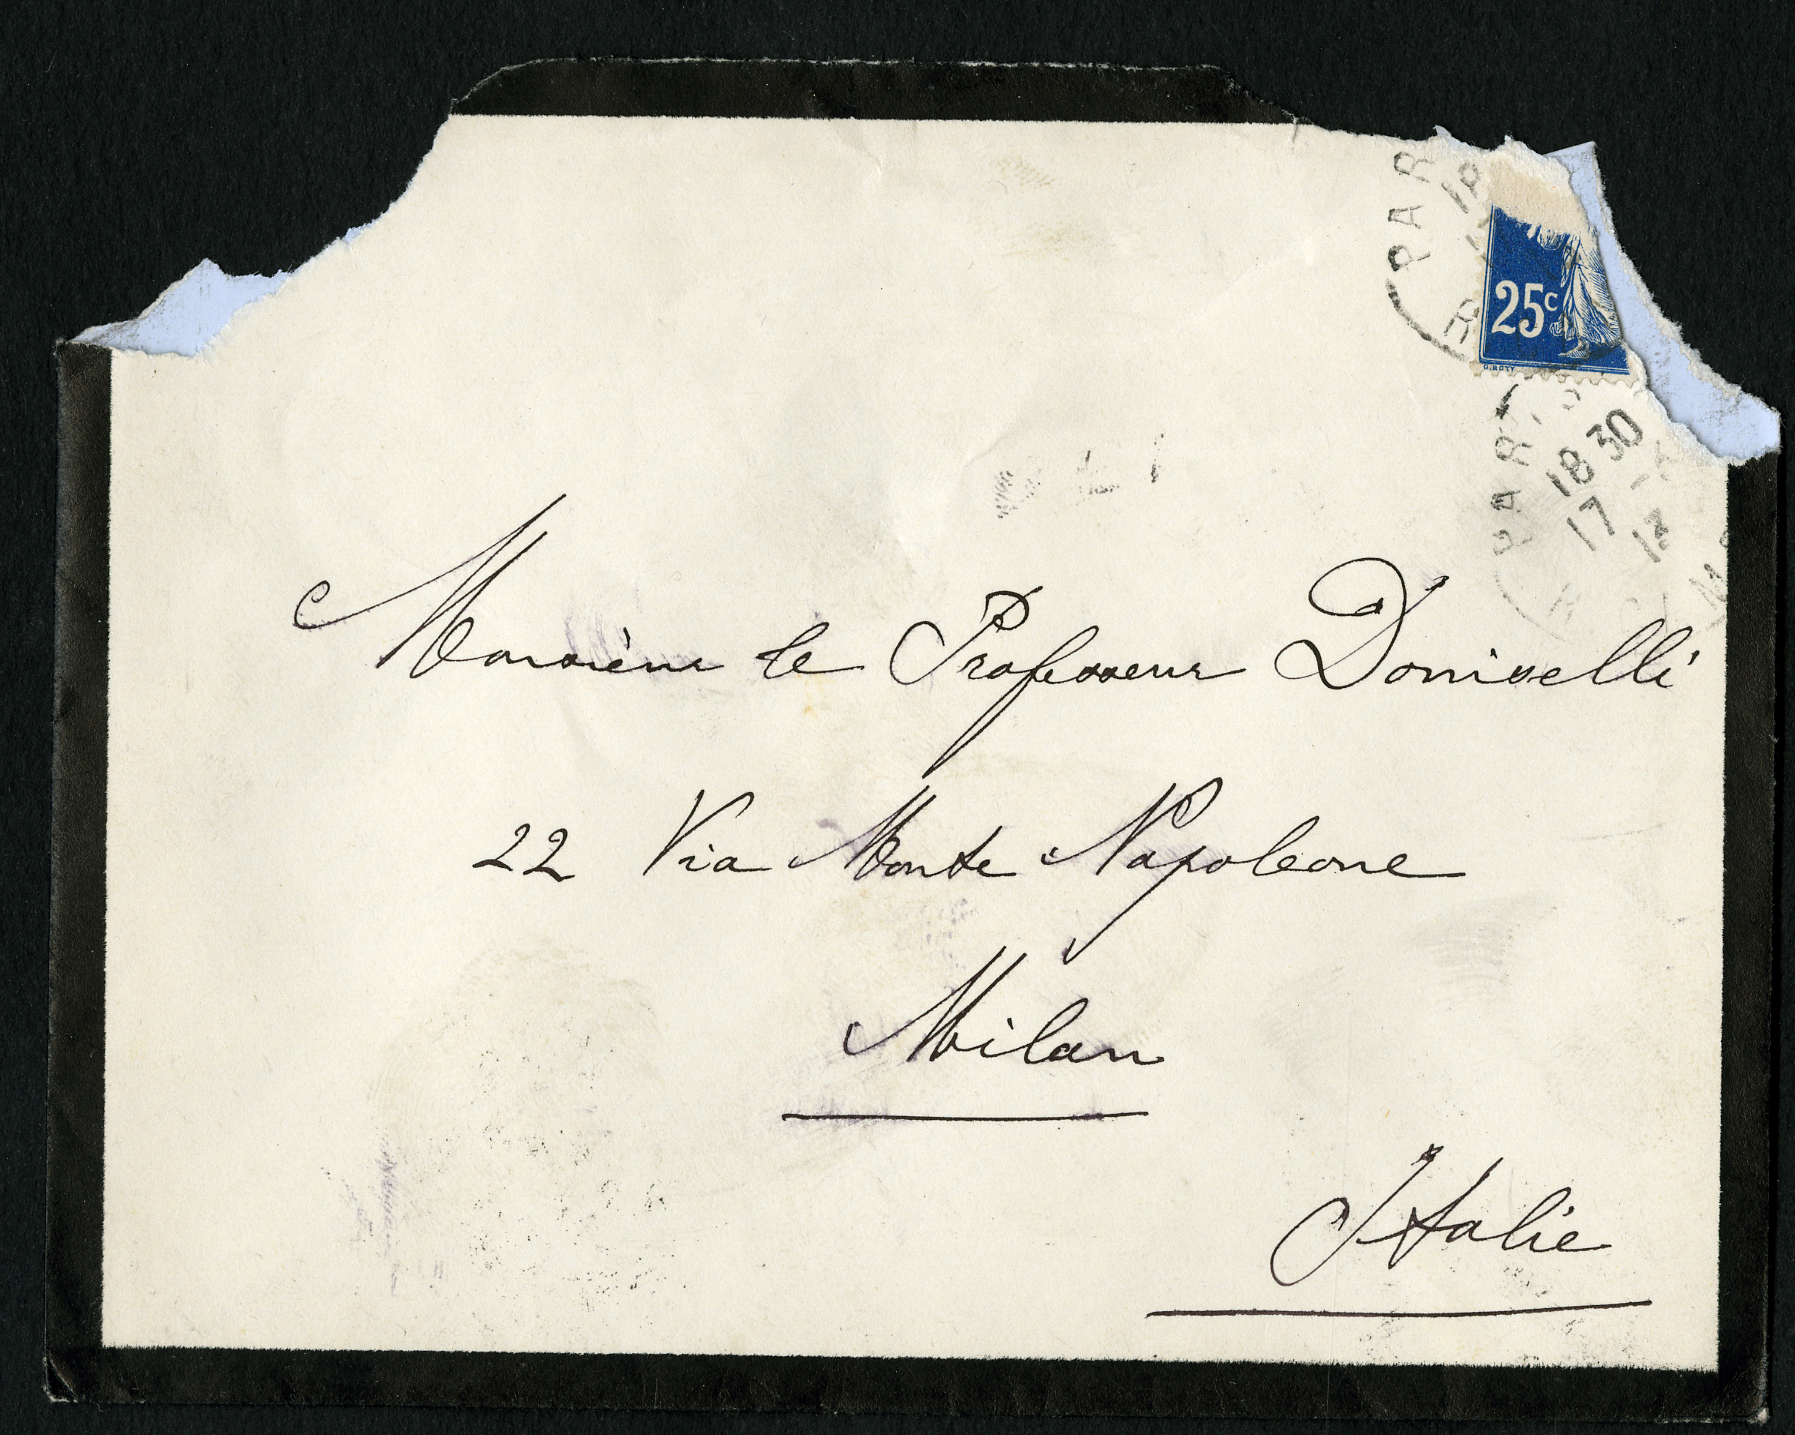 PAR
18
25c
O. ROTY
PARIS
18 30
17
13
Monsieur le Professeur Doniselli
22 Via Monte Napoleone
Milan
Italie